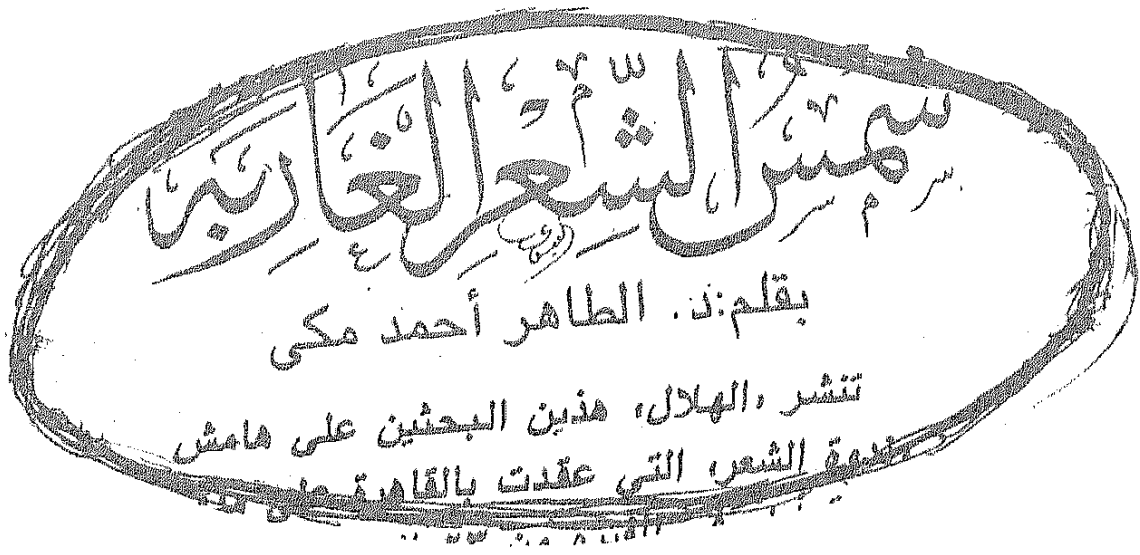 شمسُ الشِّعرِ الغَاربَه
بقلم: د. الطاهر أحمد مكى
تنشر «الهلال» هذين البحثين على هامش
ندوة الشعر، التي عقدت بالقاهرة على